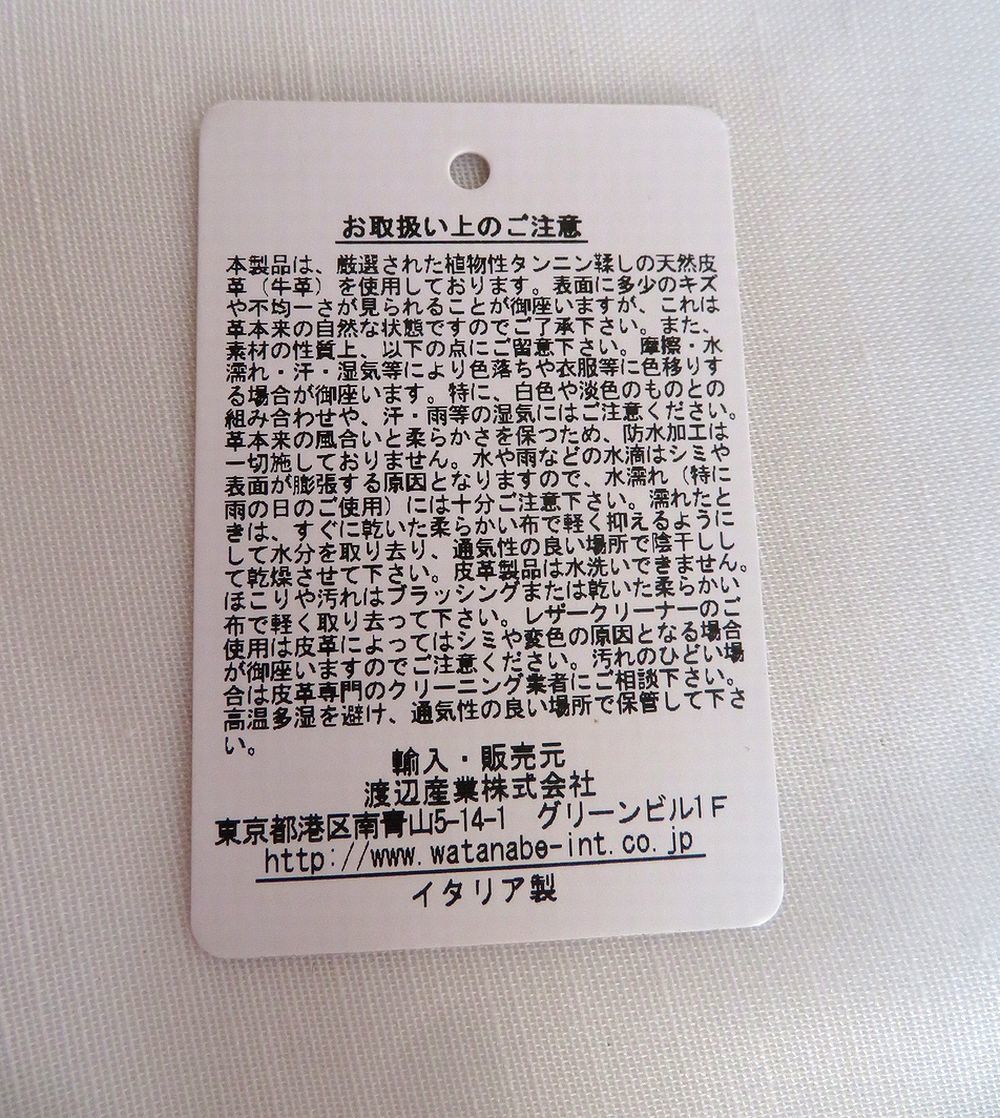 お取扱い上のご注意
本製品は、厳選された植物性タンニン鞣しの天然皮
革（牛革）を使用しております。表面に多少のキズ
や不均一さが見られることが御座いますが、これは
革本来の自然な状態ですのでご了承下さい。また、
素材の性質上、以下の点にご留意下さい。摩擦・水
濡れ・汗・湿気等により色落ちや衣服等に色移りす
る場合が御座います。特に、白色や淡色のものとの
組み合わせや、汗・雨等の湿気にはご注意ください。
革本来の風合いと柔らかさを保つため、防水加工は
一切施しておりません。水や雨などの水滴はシミや
表面が膨張する原因となりますので、水濡れ（特に
雨の日のご使用）には十分ご注意下さい。濡れたと
きは、すぐに乾いた柔らかい布で軽く抑えるように
して水分を取り去り、通気性の良い場所で陰干しし
て乾燥させて下さい。皮革製品は水洗いできません。
ほこりや汚れはブラッシングまたは乾いた柔らかい
布で軽く取り去って下さい。レザークリーナーのご
使用は皮革によってはシミや変色の原因となる場合
が御座いますのでご注意ください。汚れのひどい場
合は皮革専門のクリーニング業者にご相談下さい。
高温多湿を避け、通気性の良い場所で保管して下さ
い。
輸入・販売元
渡辺産業株式会社
東京都港区南青山5-14-1　グリーンビル1F
http://www.watanabe-int.co.jp
イタリア製